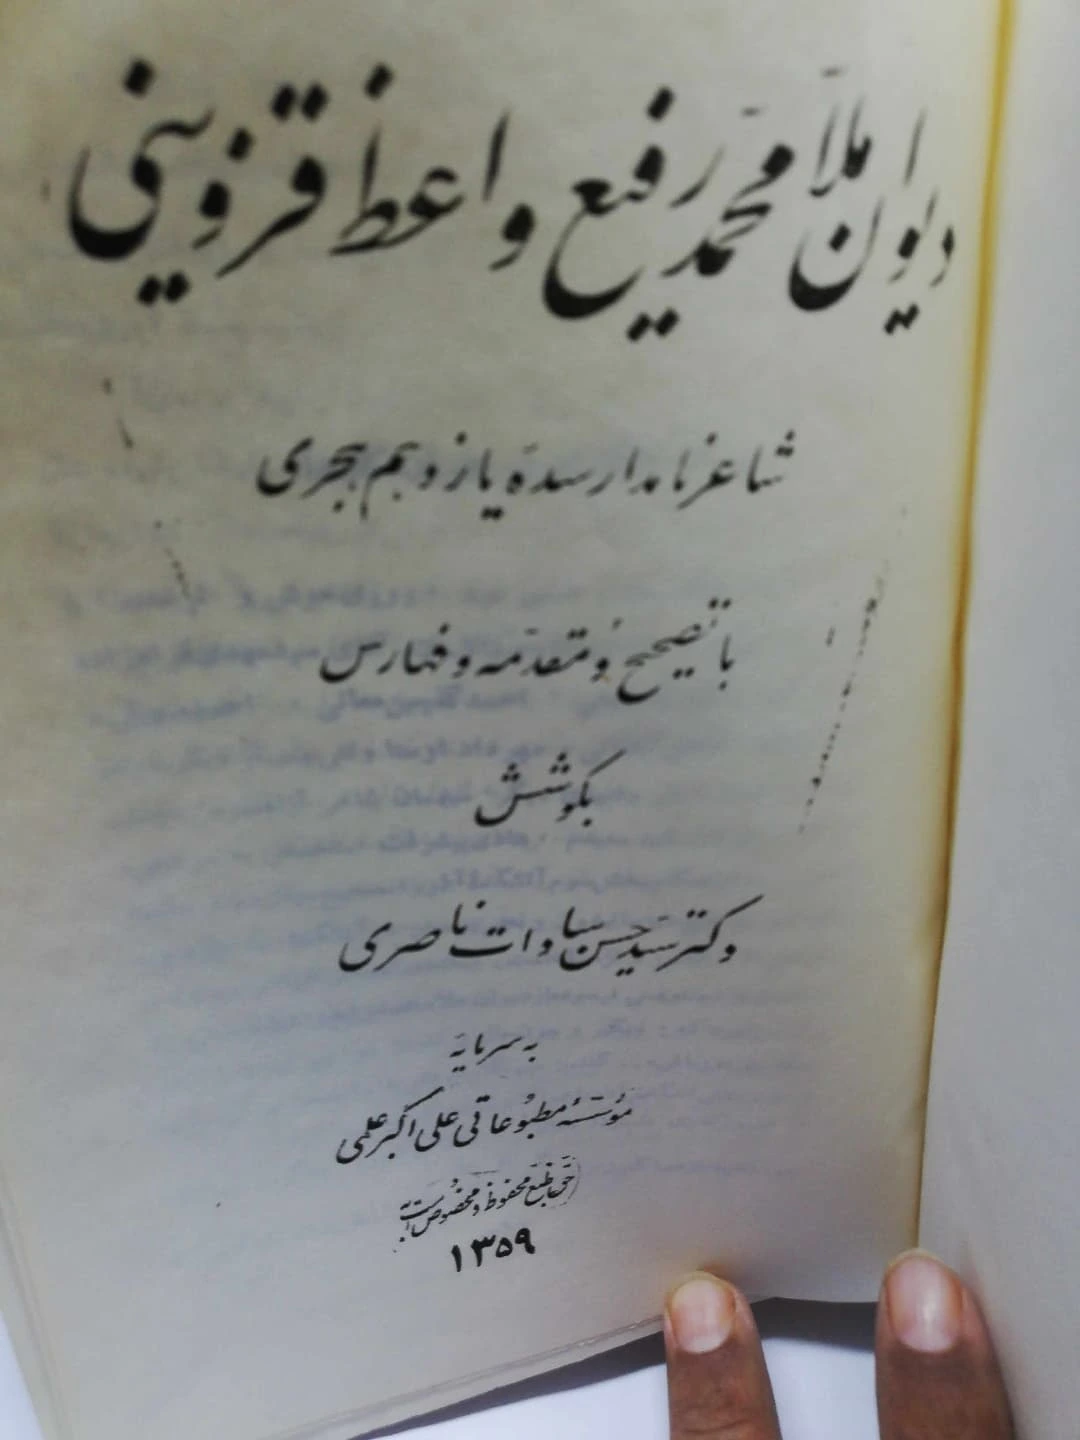 دیوان ملا محمد رفیع واعظ قزوینی
شاعر نامدار سده یازدهم هجری
با تصحیح و مقدمه و فهارس
بکوشش
دکتر سید حسن سادات ناصری
به سرمایه
مؤسسه مطبوعاتی علی اکبر علمی
(حق طبع محفوظ و مخصوص است)
۱۳۵۹